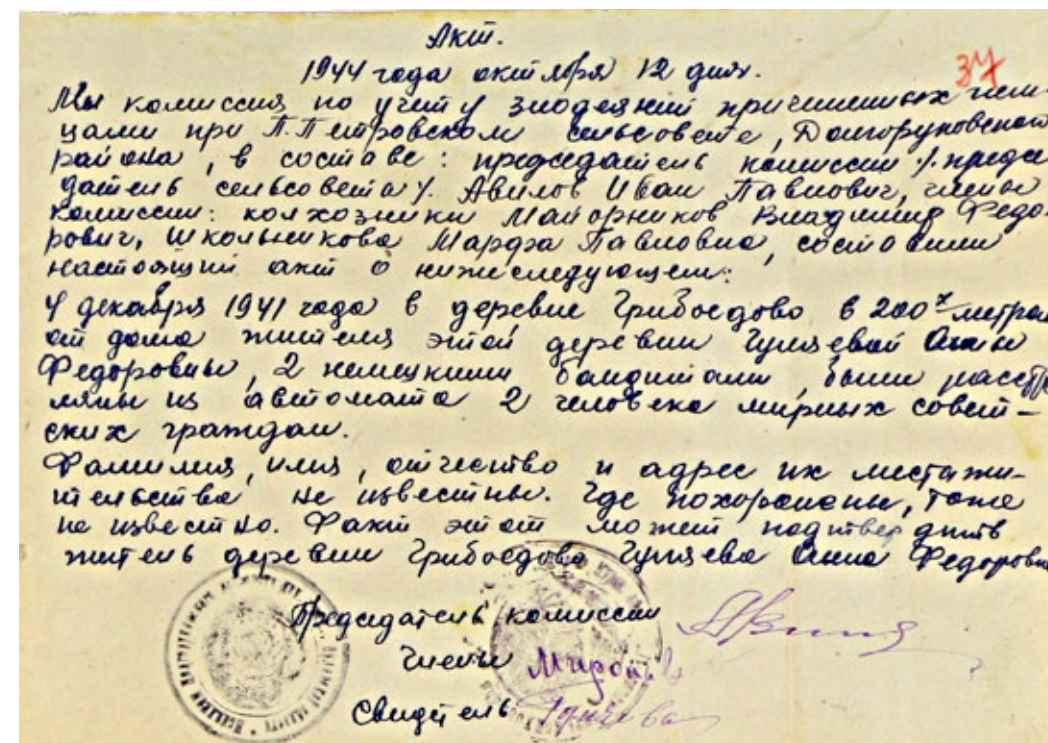 Акт.
1944 года октября 12 дня.
37
Мы комиссия по учету злодеяний причиненных нем-
цами при П.Петровском сельсовете, Долгоруковского
района, в составе: председатель комиссии /. предсе
датель сельсовета /. Авилов Иван Павлович, члены
комиссии: колхозники Майорников Владимир Федо-
рович, Школьникова Марфа Павловна, составили
настоящий акт о нижеследующем:
4 декабря 1941 года в деревне Грибоедово в 200х метрах
от дома жителя этой деревни Гуляевой Анны
Федоровны, 2 немецкими бандитами, были расстре
ляны из автомата 2 человека мирных совет-
ских граждан.
Фамилия, имя, отчество и адрес их места жи-
тельства не известны. Где похоронены, тоже
не известно. Факт этот может подтвердить
житель деревни Грибоедово Гуляева Анна Федоровна
Председатель комиссии
Члены
Свидетель Гуляева